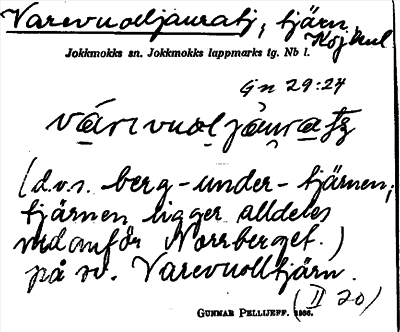 Varevuolljauratj, tjärn,
Höj. ö. h.
Jokkmokks sn. Jokkmokks lappmarks tg. Nb l.
Gn 29:24
(d.v.s. berg-under-tjärnen;
tjärnen ligger alldeles
nedanför Norrberget.)
på sv. Varevuolltjärn.
(II 20)
GUNNAR PELLIJEFF. 1956.